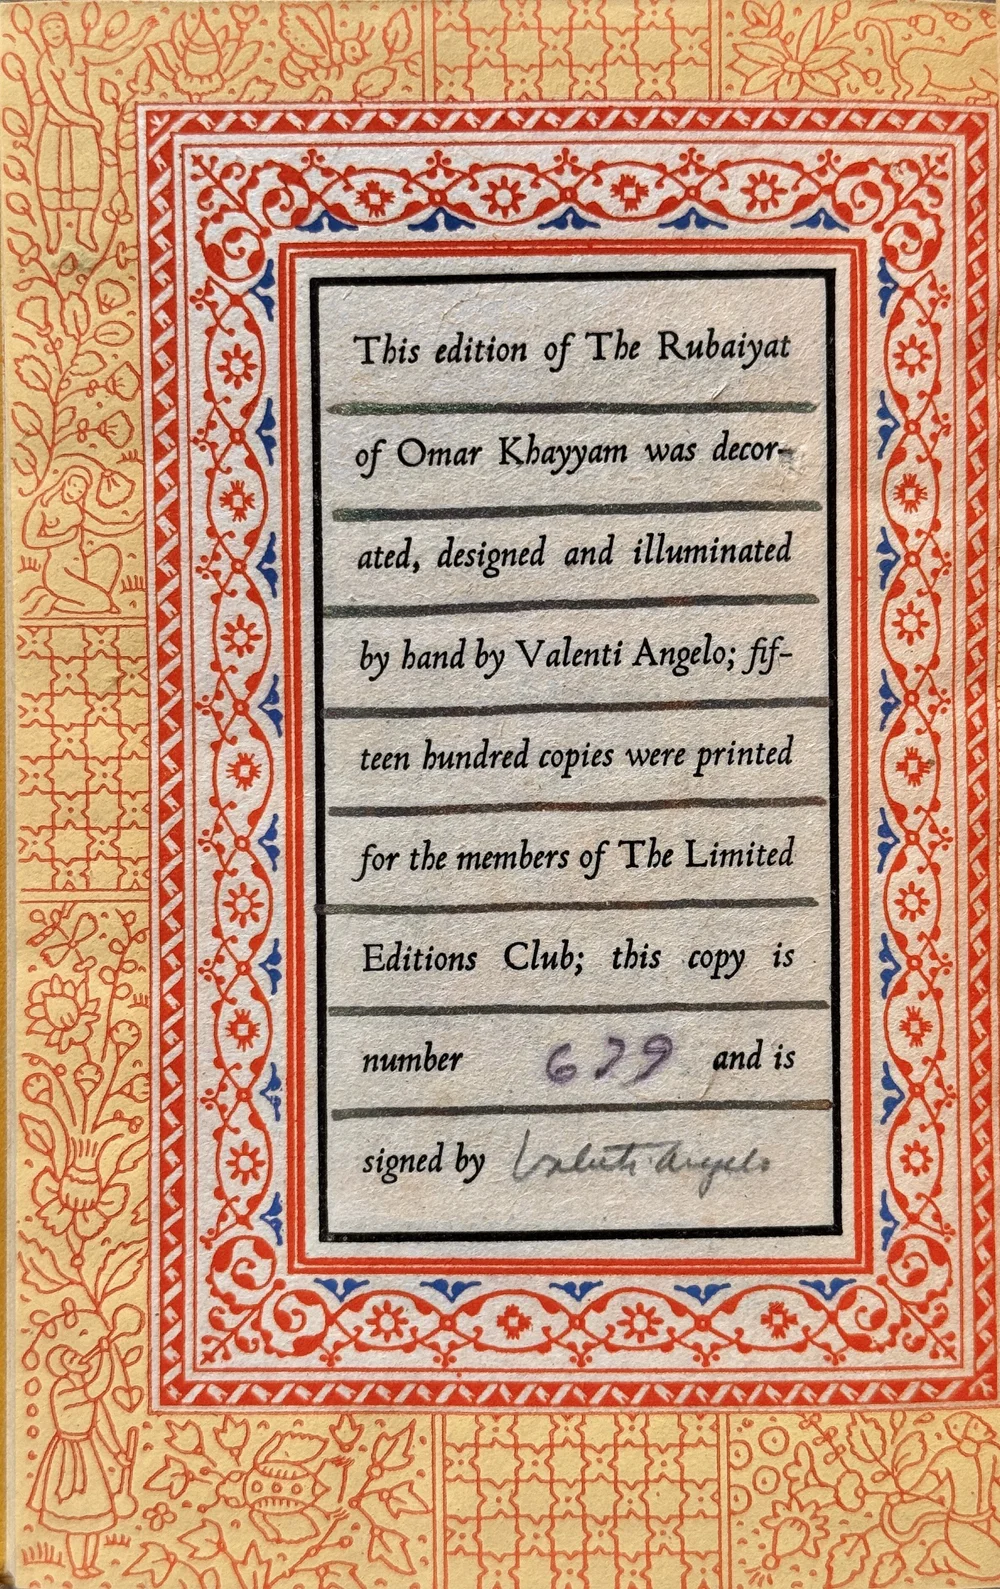 This edition of The Rubaiyat
of Omar Khayyam was decor-
ated, designed and illuminated
by hand by Valenti Angelo; fif-
teen hundred copies were printed
for the members of The Limited
Editions Club; this copy is
number 679 and is
signed by Valenti Angelo